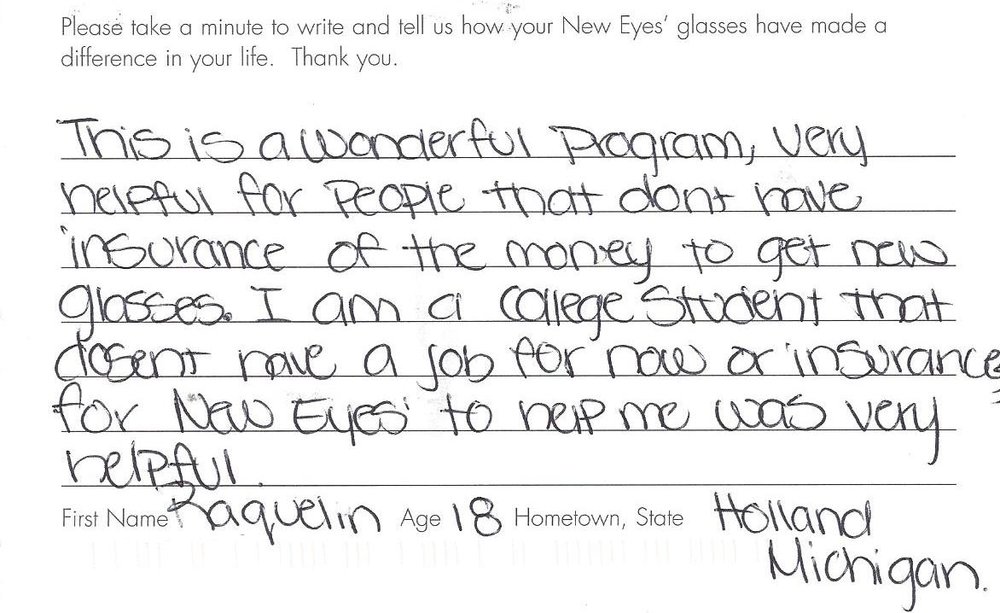 Please take a minute to write and tell us how your New Eyes' glasses have made a
difference in your life. Thank you.
This is a wonderful Program, very
helpful for People that dont have
insurance of the money to get new
glasses. I am a college Student that
dosent have a job for now or insurance
for New Eyes' to help me was very
helpful.
First Name Raquelin Age 18 Hometown, State Holland
Michigan.